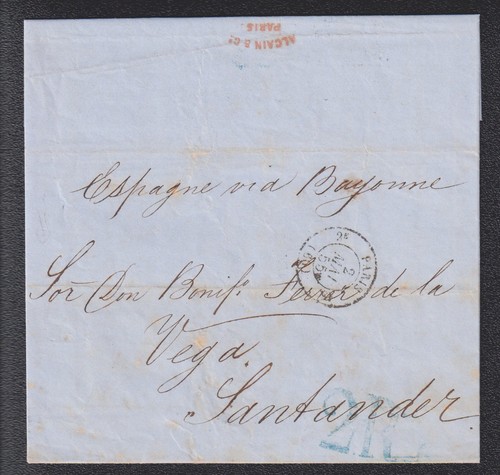 ALCAIN & Cⁱᵉ
PARIS.
Espagne via Bayonne
PARIS
2ᴱ
2
MAI
55
Sor Don Bonifº. Ferrer de la
Vega
Santander
2R